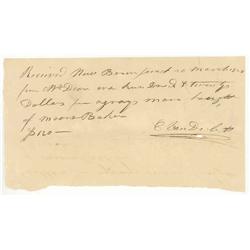 Received New Brunswick 20 March 1820
from Mr Dean one hundred & twenty
Dollars for a gray mare bought
of Moore Baker
$120—
C Van Derbilt